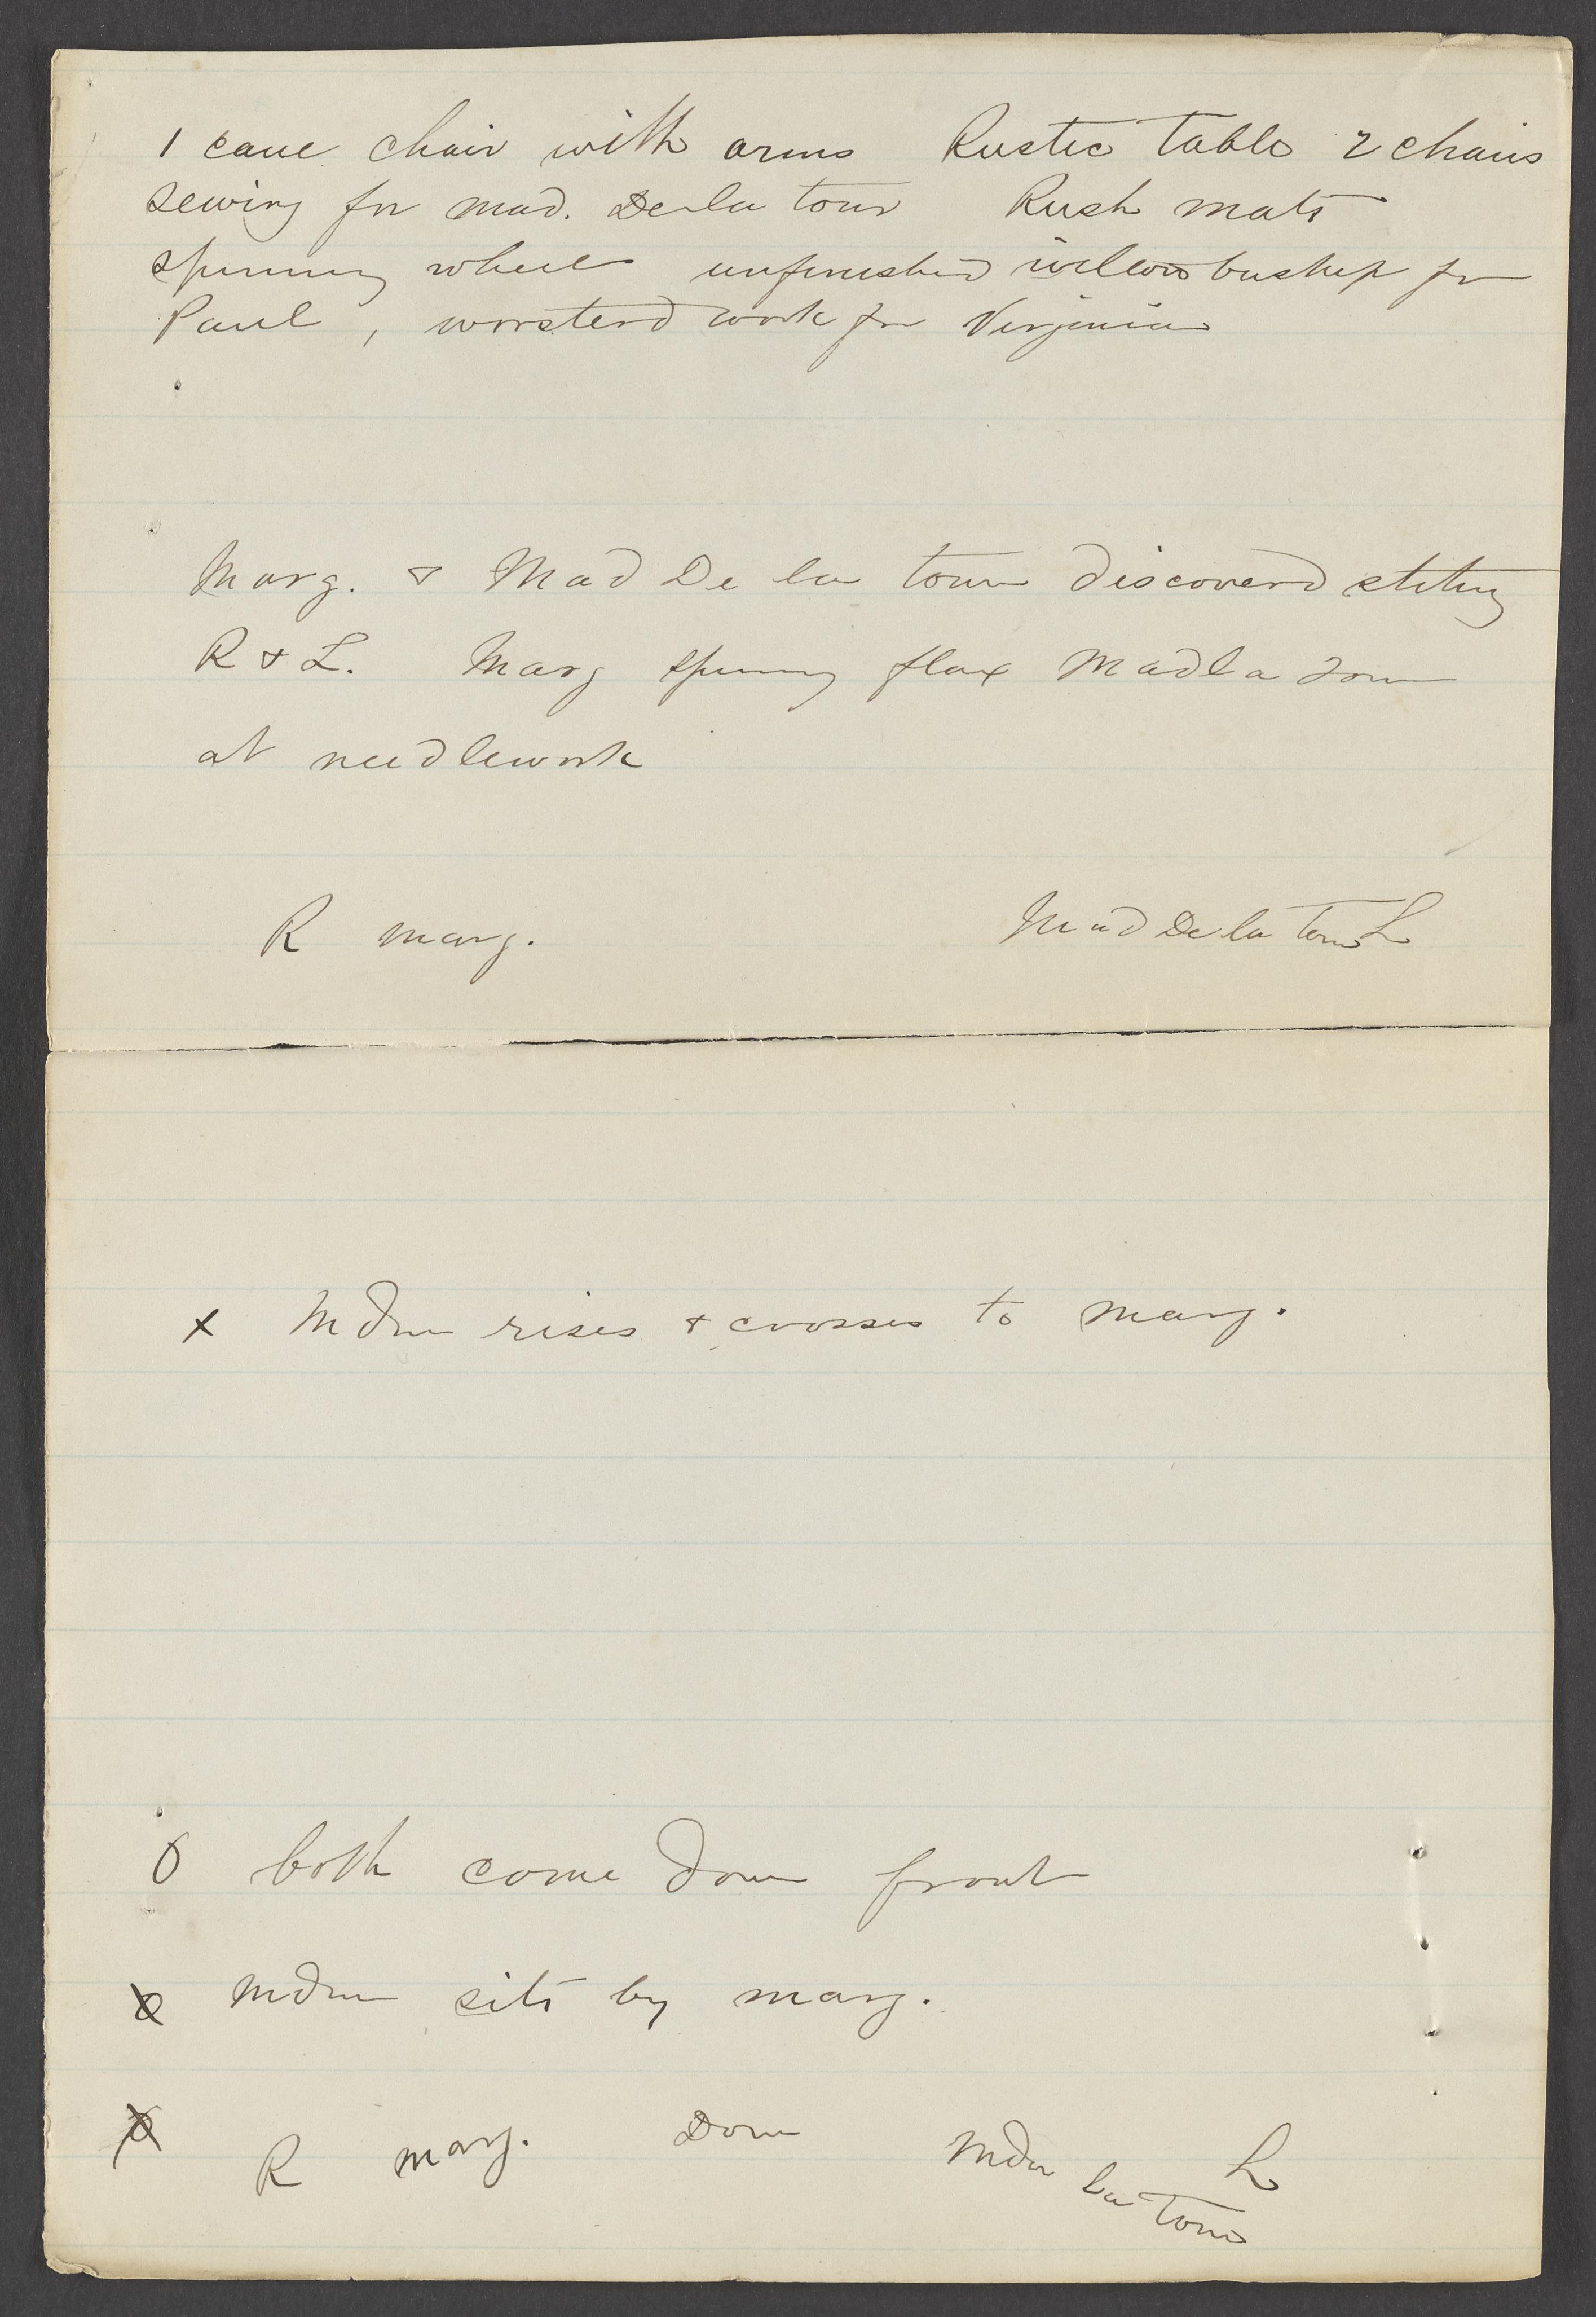 1 cane chair with arms Rustic table 2 chairs
sewing for mad. De la tour Rush mats
spinning wheel unfinished willow basket for
Paul, worsterd work for Virginia
Marg. & Mad De la tour discoverd sitting
R & L. Marg spinning flax Mad la Tour
at needlework
R marg. Mad De la Tour L
x Mdm rises & crosses to marg.
O both come down front
Mdm sits by marg.
R marg. Dom Mdm la Tour L